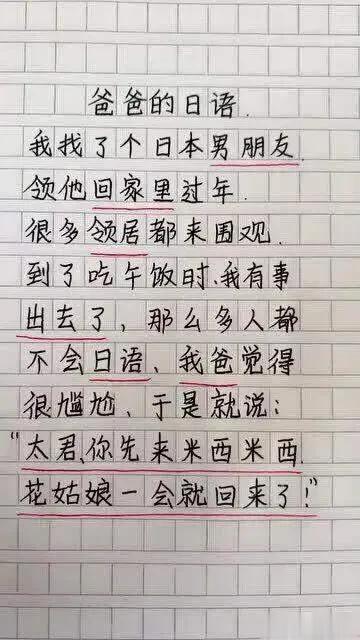 爸爸的日语.
我找了个日本男朋友.
领他回家里过年.
很多领居都来围观.
到了吃午饭时、我有事
出去了，那么多人都
不会日语、我爸觉得
很尴尬、于是就说：
“太君、你先来米西米西.
花姑娘一会就回来了！”